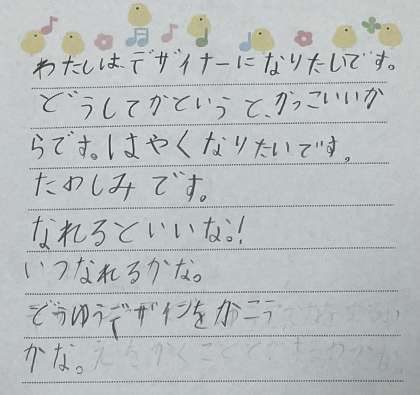 わたしはデザイナーになりたいです。
どうしてかというと、かっこいいか
らです。はやくなりたいです。
たのしみです。
なれるといいな。!
いつなれるかな。
どうゆうデザインをかこう
かな。